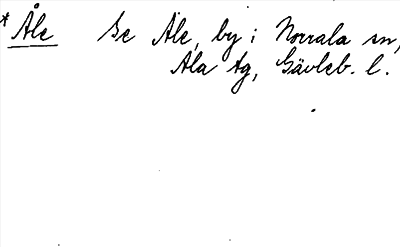 *Åle Se Äle, by i Norrala sn,
Ala tg, Gävleb. l.